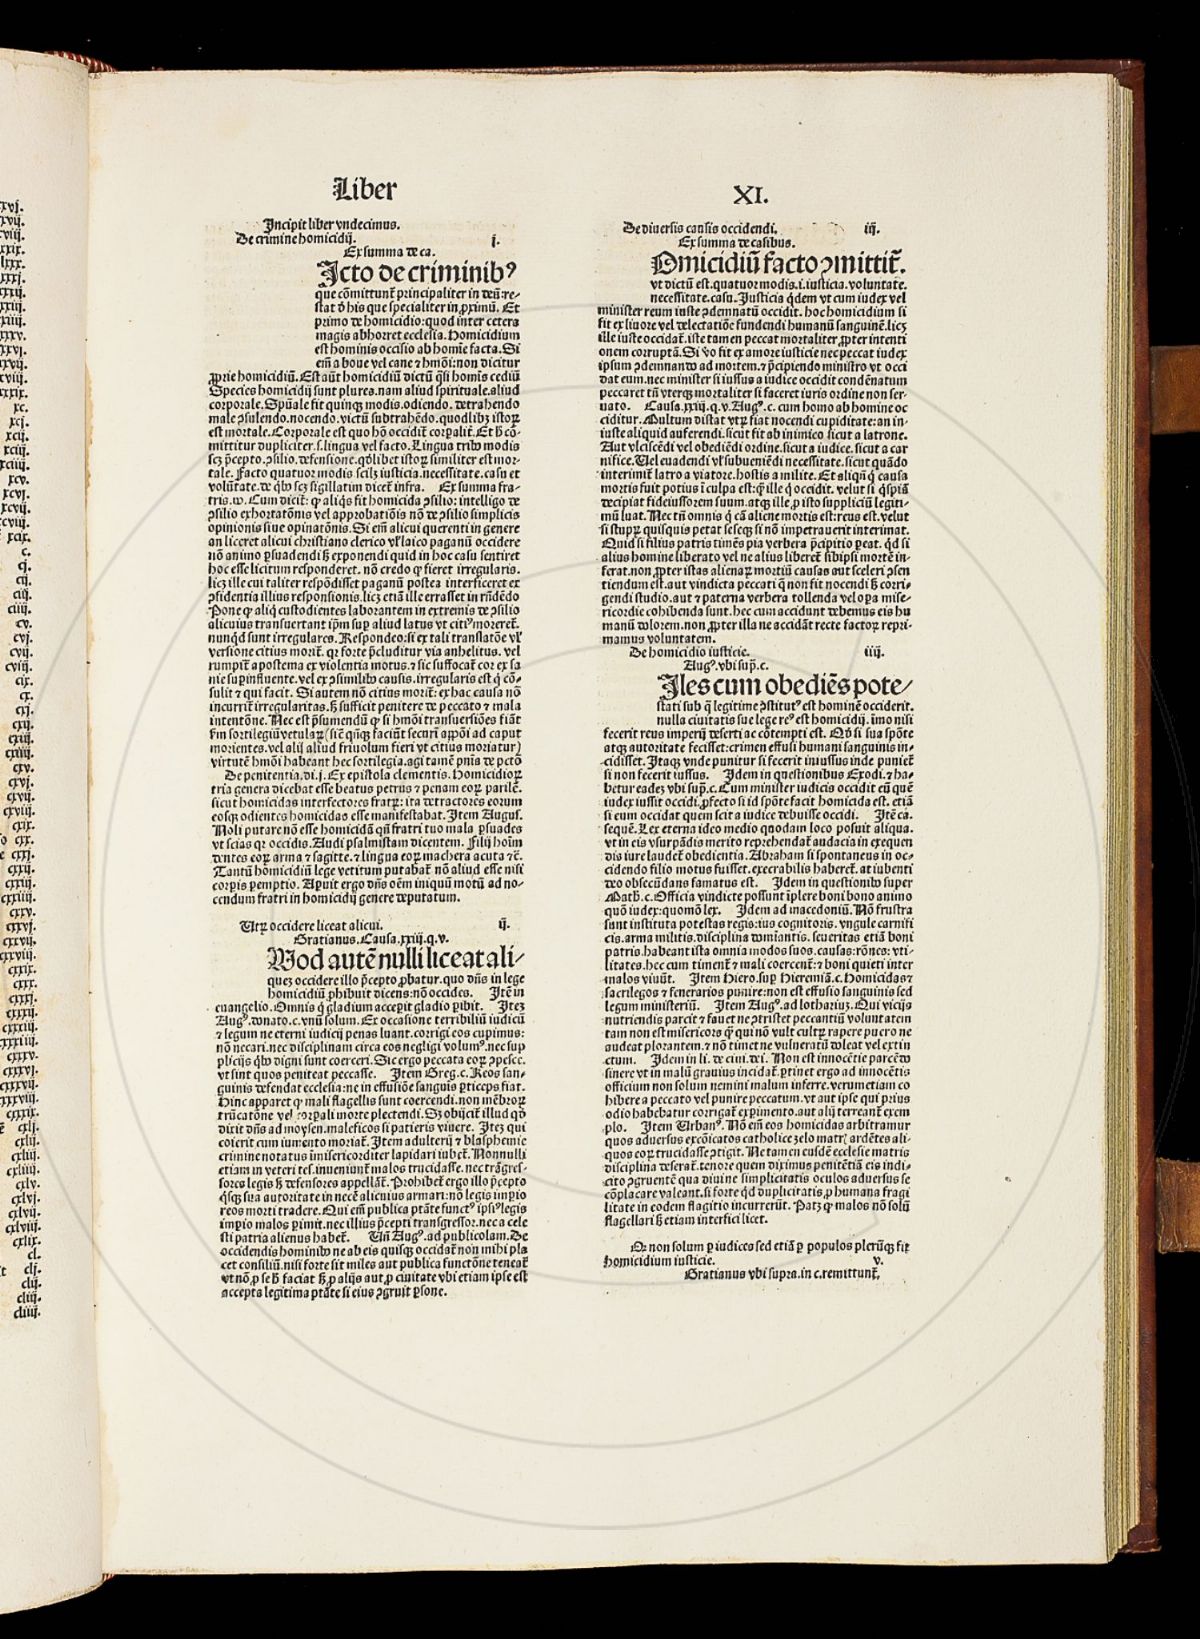 xvj.
xvij.
xviij.
xxix.
lxxx.
xxxj.
xxxij.
xxiij.
xxiiij.
xxxv.
xxvj.
xxvij.
xviij.
xxxix.
xc.
xcj.
xcij.
xciij.
xciiij.
xcv.
xcvj.
xcvij.
cviij.
xcix.
c.
cj.
cij.
ciij.
ciiij.
cv.
cvj.
cvij.
cviij.
cix.
cx.
cxj.
cxij.
cxiij.
cxiiij.
cxv.
cxvj.
cxvij.
cxviij.
cxix.
cxx.
cxxj.
cxxij.
cxxiij.
cxxiiij.
cxxv.
cxxvj.
cxxvij.
cxxviij.
cxxix.
cxxx.
cxxxj.
cxxxij.
cxxxiij.
cxxxiiij.
cxxxv.
cxxxvj.
cxxxvij.
cxxxviij.
cxxxix.
cxl.
cxlj.
cxlij.
cxliij.
cxliiij.
cxlv.
cxlvj.
cxlvij.
cxlviij.
cxlix.
cl.
clj.
clij.
cliij.
cliiij.
Liber
Incipit liber vndecimus.
De crimine homicidij. j.
Ex summa de ca.
Icto de criminibꝰ
que cõmittunt̃ principaliter in deũ: re-
stat ꝺ̃ his que specialiter in ꝓximũ. Et
primo de homicidio: quod inter cetera
magis abhorret ecclesia. Homicidium
est hominis occisio ab homĩe facta. Si
em̃ a boue vel cane ⁊ hmõi: non dicitur
ꝓprie homicidiũ. Est aũt homicidiũ dictũ q̃si homĩs cediũ
Species homicidij sunt plures. nam aliud spirituale. aliud
corporale. Spũale fit quinqꝫ modis. odiendo. detrahendo
male ꝯsulendo. nocendo. victũ subtrahẽdo. quodlibꝫ istoꝝ
est mortale. Corporale est quo hõ occidit̃ corꝑalit̃. Et h̃ cõ-
mittitur dupliciter. s. lingua vel facto. Lingua tribꝰ modis
scꝫ p̃cepto. ꝯsilio. defensione. qͦdlibet istoꝝ similiter est mor-
tale. Facto quatuor modis. scilꝫ iusticia. necessitate. casu et
volũtate. de qͥbꝰ scꝫ sigillatim dicet̃ infra. Ex summa fra-
tris. w. Cum dicit̃: ꝙ aliqͥs fit homicida ꝯsilio: intelligo de
ꝯsilio exhortatõnis vel approbatiõis nõ de ꝯsilio simplicis
opinionis siue opinatõnis. Si em̃ alicui querenti in genere
an liceret alicui christiano clerico vel laico paganũ occidere
nõ animo ꝑsuadendi sꝫ exponendi quid in hoc casu sentiret
hoc esse licitum responderet. nõ credo ꝙ fieret irregularis.
licꝫ ille cui taliter respõdisset paganũ postea interficeret ex
ꝯfidentia illius responsionis. licꝫ etiã ille errasset in rñdẽdo
Pone ꝙ aliqͥ custodientes laborantem in extremis de ꝯsilio
alicuius transuertant ip̃m sup̱ aliud latus vt citiꝰ moreret̃.
nunqͥd sunt irregulares. Respondeo: si ex tali translatõe vel
versione citius morit̃. qꝛ forte p̃cluditur via anhelitus. vel
rumpit̃ apostema ex violentia motus. ⁊ sic suffocat̃ cor ex sa
nie sup̱influente. vel ex ꝯsimilibꝰ causis. irregularis est qͥ cõ-
sulit ⁊ qui facit. Si autem nõ citius morit̃: ex hac causa nõ
incurrit̃ irregularitas. sꝫ sufficit penitere de peccato ⁊ mala
intentõne. Nec est p̃sumendũ ꝙ si hmõi transuersiões fiãt
fm̃ sortilegiũ vetulaꝝ (sic̃ qñqꝫ faciũt securi appõi ad caput
morientes. vel alij aliud friuolum fieri vt citius moriatur)
virtutẽ hmõi habeant hec sortilegia. agi tamẽ pñia de pctõ
De penitentia. di. j. Ex epistola clementis. Homicidioꝝ
tria genera dicebat esse beatus petrus ⁊ penam eoꝝ parilẽ.
sicut homicidas interfectores fratrꝫ: ita detractores eorum
eosqꝫ odientes homicidas esse manifestabat. Item Augus.
Noli putare nõ esse homicidã qñ fratri tuo mala ꝑsuades
vt scias qꝛ occidis. Audi psalmistam dicentem. Filij hoĩm
dentes eoꝝ arma ⁊ sagitte. ⁊ lingua eoꝝ machera acuta ⁊c̃.
Tantũ homicidiũ lege vetitum putabat̃ nõ aliud esse nisi
corꝑis ꝑemptio. Aꝑuit ergo dñs oẽm iniquũ motũ ad no-
cendum fratri in homicidij genere deputatum.
Vtꝝ occidere liceat alicui. ij.
Gratianus. Causa. xxiij. q. v.
Wod autẽ nulli liceat ali-
quẽ occidere illo p̃cepto ꝓbatur. quo dñs in lege
homicidiũ ꝓhibuit dicens: nõ occides. Itẽ in
euangelio. Omnis qͥ gladium acceꝑit gladio ꝑibit. Itẽ
Augꝰ. donato. c. vnũ solum. Ex occasione terribiliũ iudicũ
⁊ legum ne eterni iudicij penas luant. corrigi eos cupimus:
nõ necari. nec disciplinam circa eos negligi volumꝰ. nec sup
plicijs qͥbꝰ digni sunt coerceri. Sic ergo peccata eoꝝ ꝯpesce.
vt sint quos peniteat peccasse. Item Greg. c. Reos san-
guinis defendat ecclesia: ne in effusiõe sanguis ꝑticeps fiat.
Hinc apparet ꝙ mali flagellis sunt coercendi. non mẽbroꝝ
trũcatõne vel corꝑali morte plectendi. Sꝫ obijcit̃ illud qͦd
dixit dñs ad moysen. maleficos si patieris viuere. Itẽ qui
coierit cum iumento moriat̃. Item adulterij ⁊ blasphemie
crimine notatus ĩmisericorditer lapidari iubet̃. Nonnulli
etiam in veteri tes. inueniunt̃ malos trucidasse. nec trãsgres-
sores legis sꝫ defensores appellãt̃. Prohibet̃ ergo illo p̃cepto
qͥsqꝫ sua autoritate in necẽ alicuius armari: nõ legis imꝑio
reos morti tradere. Qui em̃ publica ptãte functꝰ ipsiꝰ legis
imꝑio malos ꝑimit. nec illius p̃cepti transgressor. nec a cele
sti patria alienus habet̃. Vñ Augꝰ. ad publicolam. De
occidendis hominibꝰ ne ab eis quisqꝫ occidat̃ non mihi pla
cet consiliũ. nisi forte sit miles aut publica functõne teneat̃
vt nõ ꝓ se h̃ faciat sꝫ ꝓ alijs aut ꝓ ciuitate vbi etiam ipse est
accepta legitima ptãte si eius ꝯgruit ꝑsone.
XI.
De diuersis causis occidendi. iij.
Ex summa de casibus.
Omicidiũ facto ꝯmittit̃.
vt dictũ est. quatuor modis. i. iusticia. voluntate.
necessitate. casu. Iusticia qͥdem vt cum iudex vel
minister reum iuste ꝯdemnatũ occidit. hoc homicidium si
fit ex liuore vel delectatiõe fundendi humanũ sanguinẽ. licꝫ
ille iuste occidat̃. iste tamen peccat mortaliter ꝓpter intenti
onem corruptã. Si vͦo fit ex amore iusticie nec peccat iudex
ipsum ꝯdemnando ad mortem. ⁊ p̃cipiendo ministro vt occi
dat eum. nec minister si iussus a iudice occidit condẽnatum
peccaret tñ vterqꝫ mortaliter si faceret iuris ordine non ser-
uato. Causa. xxiij. q. v. Augꝰ. c. cum homo ab homine oc
ciditur. Multum distat vtꝝ fiat nocendi cupiditate: an in-
iuste aliquid auferendi. sicut fit ab inimico sicut a latrone.
Aut vlciscẽdi vel obediẽdi ordine. sicut a iudice. sicut a car
nifice. Uel euadendi vel subueniẽdi necessitate. sicut quãdo
interimit̃ latro a viatore. hostis a milite. Et aliqñ qͥ causa
mortis fuit potius ĩ culpa est: qͣꝫ ille qͥ occidit. velut si qͥspiã
decipiat fideiussorem suum. atqꝫ ille ꝓ isto suppliciũ legiti-
mũ luat. Nec tñ omnis qͥ cã aliene mortis est: reus est. velut
si stupꝝ quisquis petat se seqꝫ si nõ impetrauerit interimat.
Quid si filius patris timẽs pia verbera p̃cipitio ꝑeat. qͥd si
alius homine liberato vel ne alius liberet̃ sibipsi mortẽ in-
ferat. non ꝓpter istas alienaꝝ mortiũ causas aut sceleri ꝯsen
tiendum est. aut vindicta peccati q̃ non fit nocendi sꝫ corri-
gendi studio. aut ⁊ paterna verbera tollenda vel oꝑa mise-
ricordie cohibenda sunt. hec cum accidunt debemus eis hu
manũ dolorem. non ꝓpter illa ne accidãt recte factoꝝ repri-
mamus voluntatem.
De homicidio iusticie. iiij.
Augꝰ. vbi sup̱. c.
Iles cum obediẽs pote-
stati sub q̃ legitime ꝯstitutꝰ est hominẽ occiderit.
nulla ciuitatis sue lege reꝰ est homicidij. ĩmo nisi
fecerit reus imperij deserti ac cõtempti est. Qͦd si sua spõte
atqꝫ autoritate fecisset: crimen effusi humani sanguinis in-
cidisset. Itaqꝫ vnde punitur si fecerit iniussus inde puniet̃
si non fecerit iussus. Idem in questionibus Exodi. ⁊ ha-
betur eadẽ vbi sup̱. c. Cum minister iudicis occidit eũ quẽ
iudex iussit occidi. ꝓfecto si id spõte facit homicida est. etiã
si eum occidat quem scit a iudice debuisse occidi. Itẽ cã.
sequẽ. Lex eterna ideo medio quodam loco posuit aliqua.
vt in eis vsurpãdis merito reprehendat̃ audacia in exequen
dis iure laudet̃ obedientia. Abraham si spontaneus in oc-
cidendo filio motus fuisset. execrabilis haberet̃. at iubenti
deo obsecũdans famatus est. Idem in questionibꝰ super
Math̃. c. Officia vindicte possunt ĩplere boni bono animo
quõ iudex: quomõ lex. Idem ad macedoniũ. Nõ frustra
sunt instituta potestas regis: ius cognitoris. vngule carnifi
cis. arma militis. disciplina domĩantis. seueritas etiã boni
patris. habeant ista omnia modos suos. causas: rões: vti-
litates. hec cum timent̃ ⁊ mali coercent̃: ⁊ boni quieti inter
malos viuũt. Item Hiero. sup̱ Hieremiã. c. Homicidas ⁊
sacrilegos ⁊ fenerarios punire: non est effusio sanguinis sed
legum ministeriũ. Item Augꝰ. ad lothariuꝫ. Qui vicijs
nutriendis parcit ⁊ fauet ne ꝯtristet peccantiũ voluntatem
tam non est misericors qͣꝫ qui nõ vult cultrꝫ rapere puero ne
audeat plorantem. ⁊ nõ timet ne vulneratũ doleat vel extin
ctum. Idem in li. de ciui. dei. Non est innocẽtie parcẽdo
sinere vt in malũ grauius incidat̃ ꝑtinet ergo ad innocẽtis
officium non solum nemini malum inferre. verumetiam co
hibere a peccato vel punire peccatum. vt aut ipse qui prius
odio habebatur corrigat̃ exꝑimento. aut alij terreant̃ exem
plo. Item Urbanꝰ. Nõ em̃ eos homicidas arbitramur
quos aduersus excõicatos catholice zelo matris ardẽtes ali-
quos eoꝝ trucidasse ꝯtigit. Ne tamen eiusdẽ ecclesie matris
disciplina deserat̃. tenore quem diximus penitẽtiã eis indi-
cito ꝯgruentẽ qua diuine simplicitatis oculos aduersus se
cõplacare valeant. si forte qͥd duplicitatis ꝓ humana fragi
litate in eodem flagitio incurrerũt. Patꝫ ꝙ malos nõ solũ
flagellari sꝫ etiam interfici licet.
Qꝛ non solum ꝑ iudices sed etiã ꝑ populos plerũqꝫ fit
homicidium iusticie. v.
Gratianus vbi supra. in c. remittunt̃.